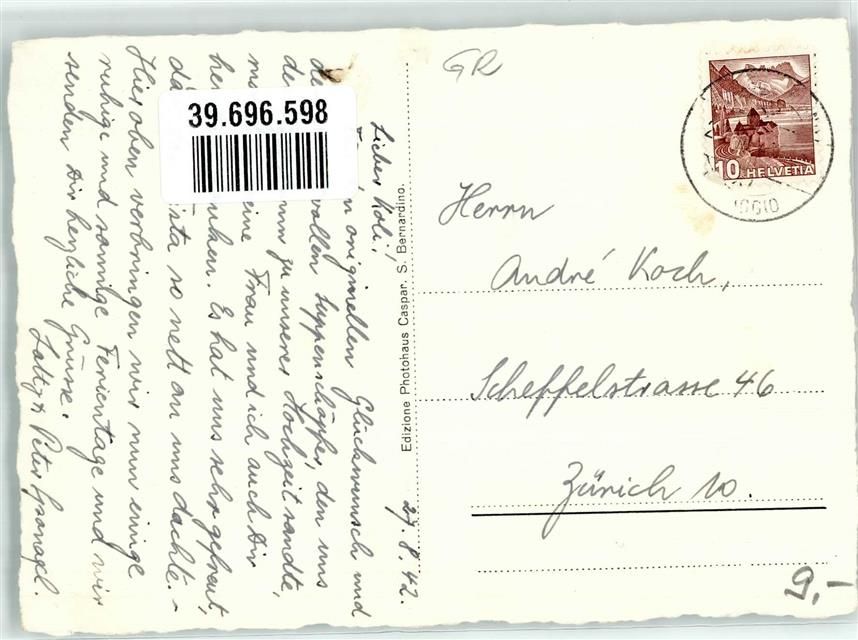 GR
39.696.598
10 HELVETIA
Herrn
André Koch,
Scheffelstrasse 46
Zürich 10.
9,-
Edizione Photohaus Caspar, S. Bernardino.
27.8.42.
Lieber Koli!
originellen Glückwunsch und
vollen Suppenschöpfer, den uns
zu unserer Hochzeit sandte,
meine Frau und ich auch Dir
danken. Es hat uns sehr gefreut,
so nett an uns dachte. -
Hier oben verbringen wir nun einige
ruhige und sonnige Ferientage und wir
senden Dir herzliche Grüsse.
Peter